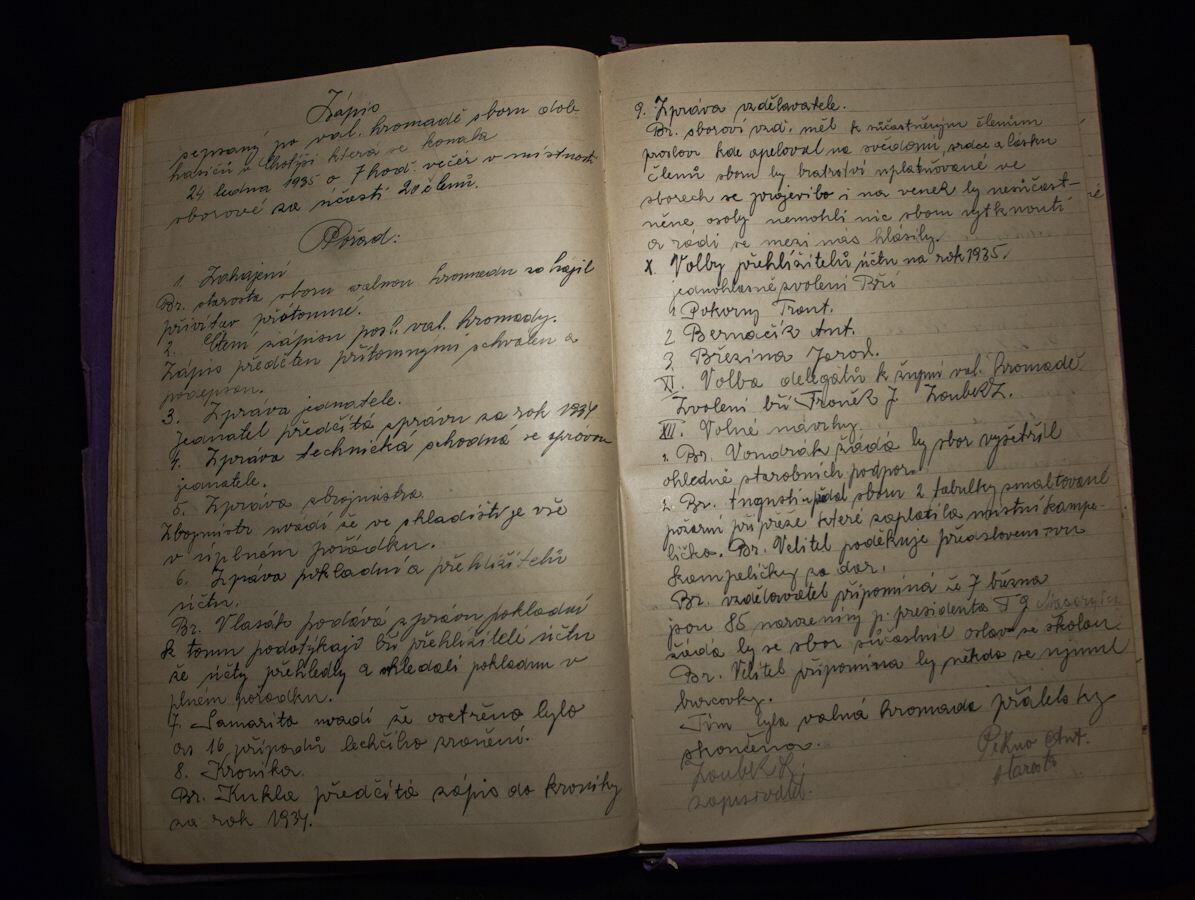 Zápis
sepsaný po val. hromadě sboru dob.
hasičů v Chotýši která se konala
24 ledna 1935 o 7 hod. večer v místnosti
sborové za účasti 20 členů.
Pořad:
1. Zahájení
Br. starosta sboru valnou hromadu zahájil
přivítav přítomné.
2. Čtení zápisu posl. val. hromady.
Zápis předčten přítomnými schválen a
podepsán.
3. Zpráva jednatele.
Jednatel předčítá zprávu za rok 1934
4. Zpráva technická shodná se zprávou
jednatele.
5. Zpráva zbrojmistra
Zbrojmistr uvádí že ve skladišti je vše
v úplném pořádku.
6. Zpráva pokladní a přehlížitelů
účtu.
Br. Vlasák podává zprávu pokladní
k tomu podotýkají bři přehlížitelé účtu
že účty přehledly a shledali pokladnu v
plném pořádku.
7. Samarita uvádí že ošetřeno bylo
as 16 případů lehčího zranění.
8. Kronika.
Br. Kukla předčítá zápis do kroniky
za rok 1934.
9. Zpráva vzdělavatele.
Br. sborový vzd. měl k súčastněným členům
proslov kde apeloval na svědomí, srdce a lásku
členů sboru by bratrství uplatňované ve
sborech se projevilo i na venek by nesúčast-
něné osoby nemohli nic sboru vytknouti
a rádi se mezi nás hlásily.
X. Volby přehlížitelů účtu na rok 1935.
jednohlasně zvoleni Bří
1 Pokorný Frant.
2 Bernačík Ant.
3 Březina Jarod.
XI. Volba delegátů k župní val. hromadě
Zvoleni bří Froněk J Zoubek Z.
XII. Volné návrhy
1. Br. Vondrák žádá by sbor vyšetřil
ohledně starobních podpor.
2. Br. Augustin předal sboru 2 tabulky smaltované
požární přípřeže které zaplatila místní kampe-
lička. Br. Velitel poděkuje představenstvu
kampeličky za dar.
Br. vzdělavatel připomíná že 7 března
jsou 85 narozeniny p. presidenta T G Masaryka
žádá by se sbor súčastnil oslav se školou
Br. Velitel připomíná by někdo se ujmul
burcovky.
Tím byla valná hromada přátelsky
skončena.
Zoubek Z.
zapisovatel.
Pekno Ant.
starosta